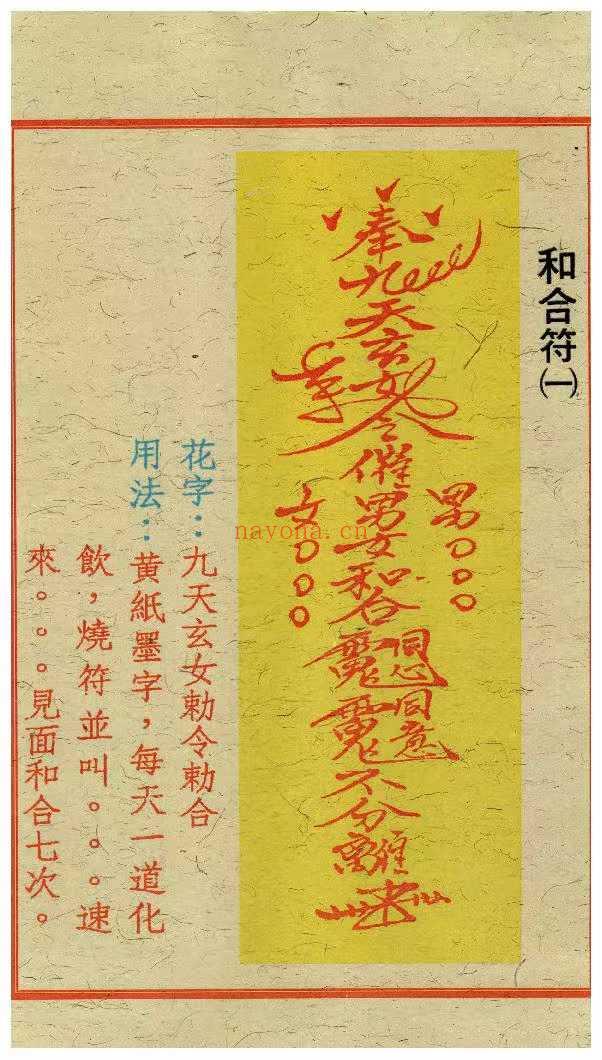 和合符㈠
奉九天玄女令催男女和合 同心 同意不分離
男○○○
女○○○
花字：九天玄女勅令勅合
用法：黄紙墨字，每天一道化
飲，燒符並叫。。。速
來。。。見面和合七次。
nayona.cn